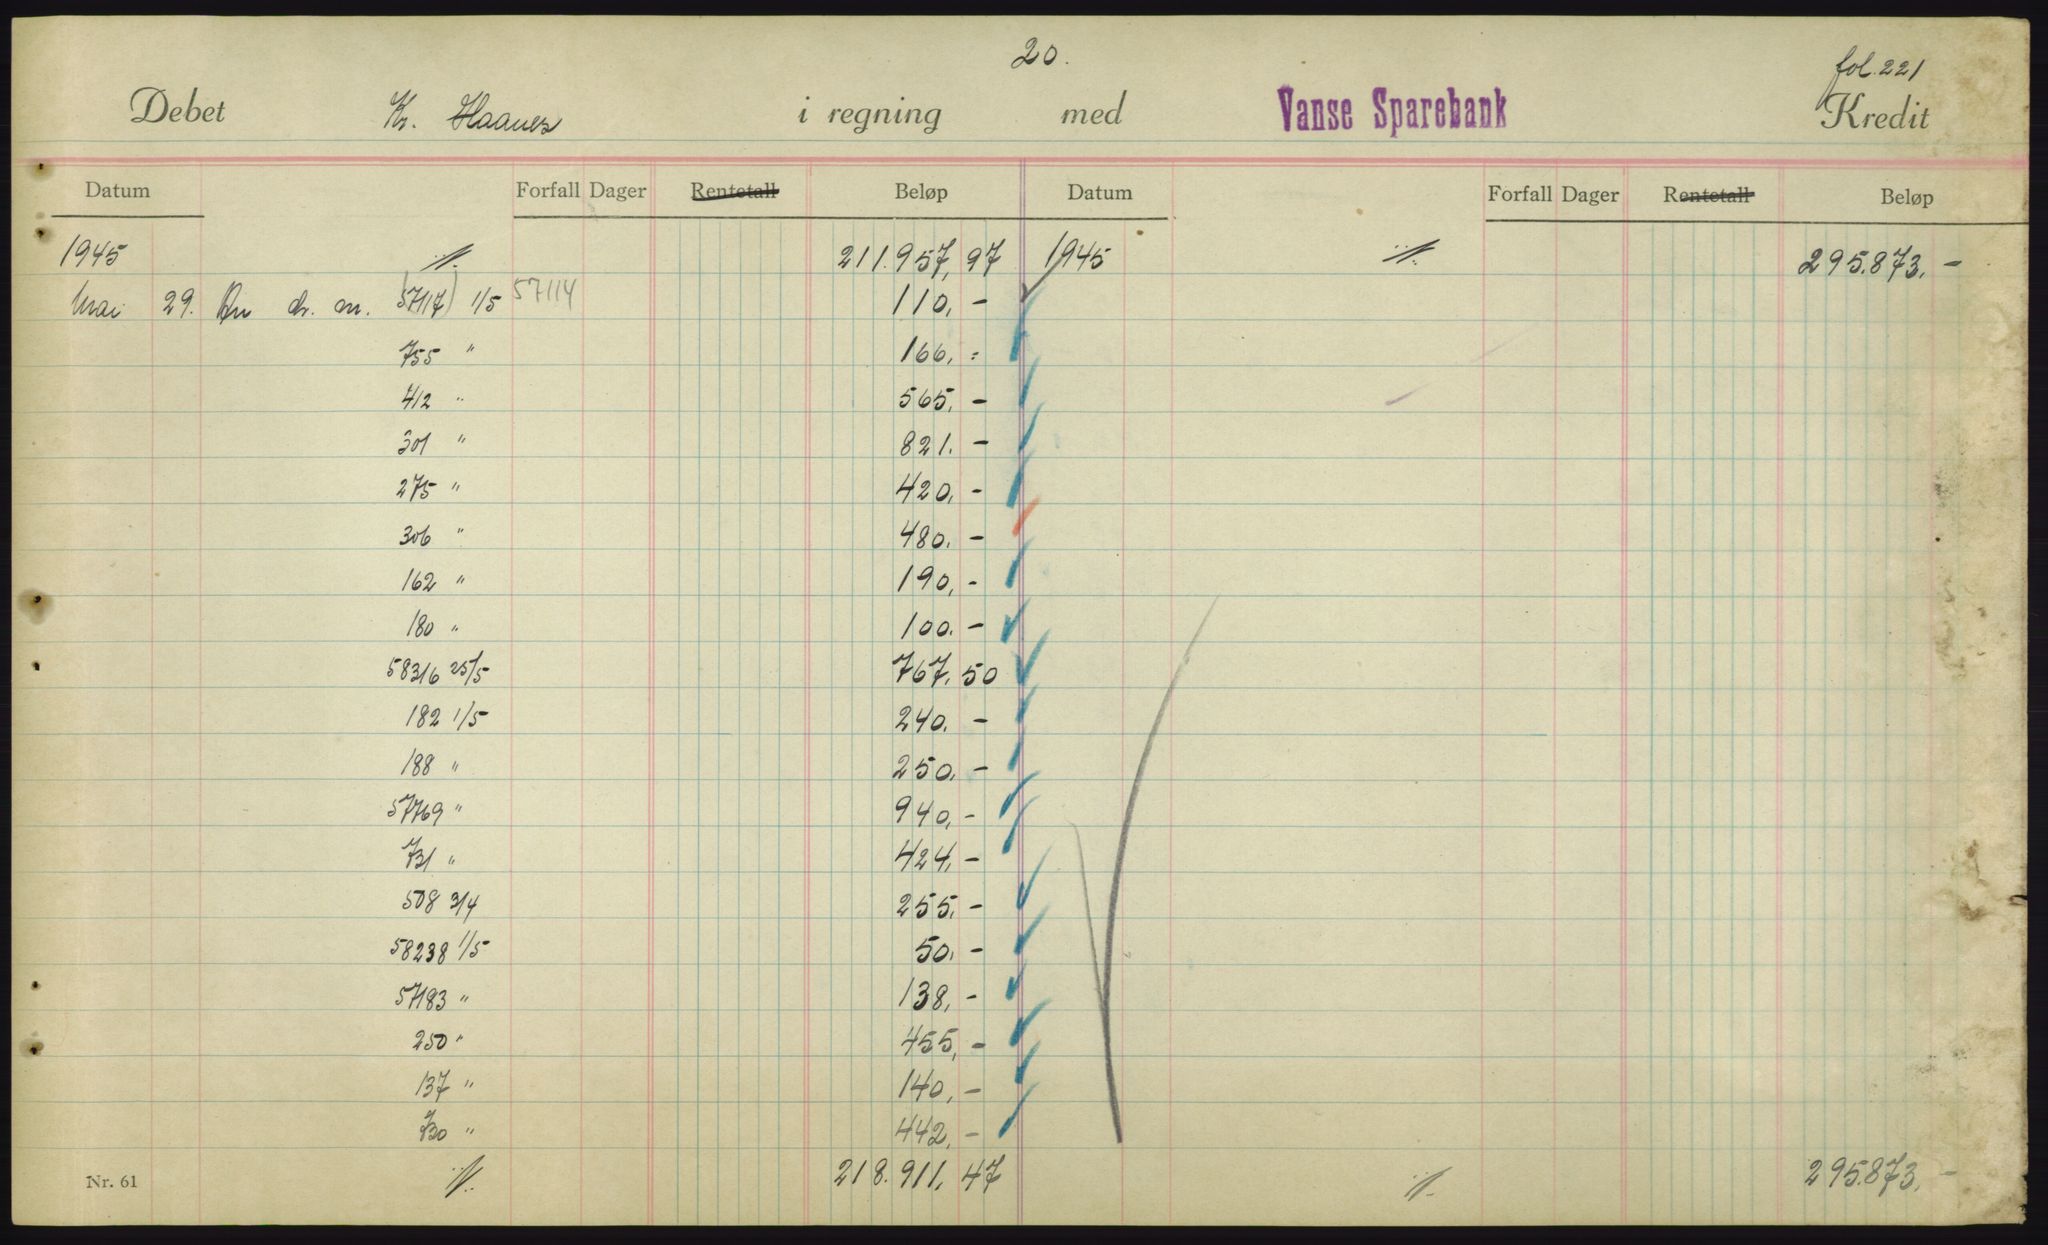 20.
fol. 221
Debet Kr. Haanes i regning med Vanse Sparebank Kredit
Datum Forfall Dager Rentetall Beløp Datum Forfall Dager Rentetall Beløp
1945 ·/. 211.957,97 1945 ·/. 295.873,-
Mai 29. An dr. m. (57117) 1/5 57114 110,-
755 " 166,-
412 " 565,-
301 " 821.-
275 " 420,-
306 " 480.-
162 " 190,-
180 " 100.-
58316 25/5 767,50
182 1/5 240.-
188 " 250,-
57769 " 940,-
731 " 424,-
508 3/4 255,-
58238 1/5 50,-
57183 " 138,-
250 " 455,-
137 " 140,-
730 " 442,-
Nr. 61 ·/. 218.911,47 ·/. 295.873,-